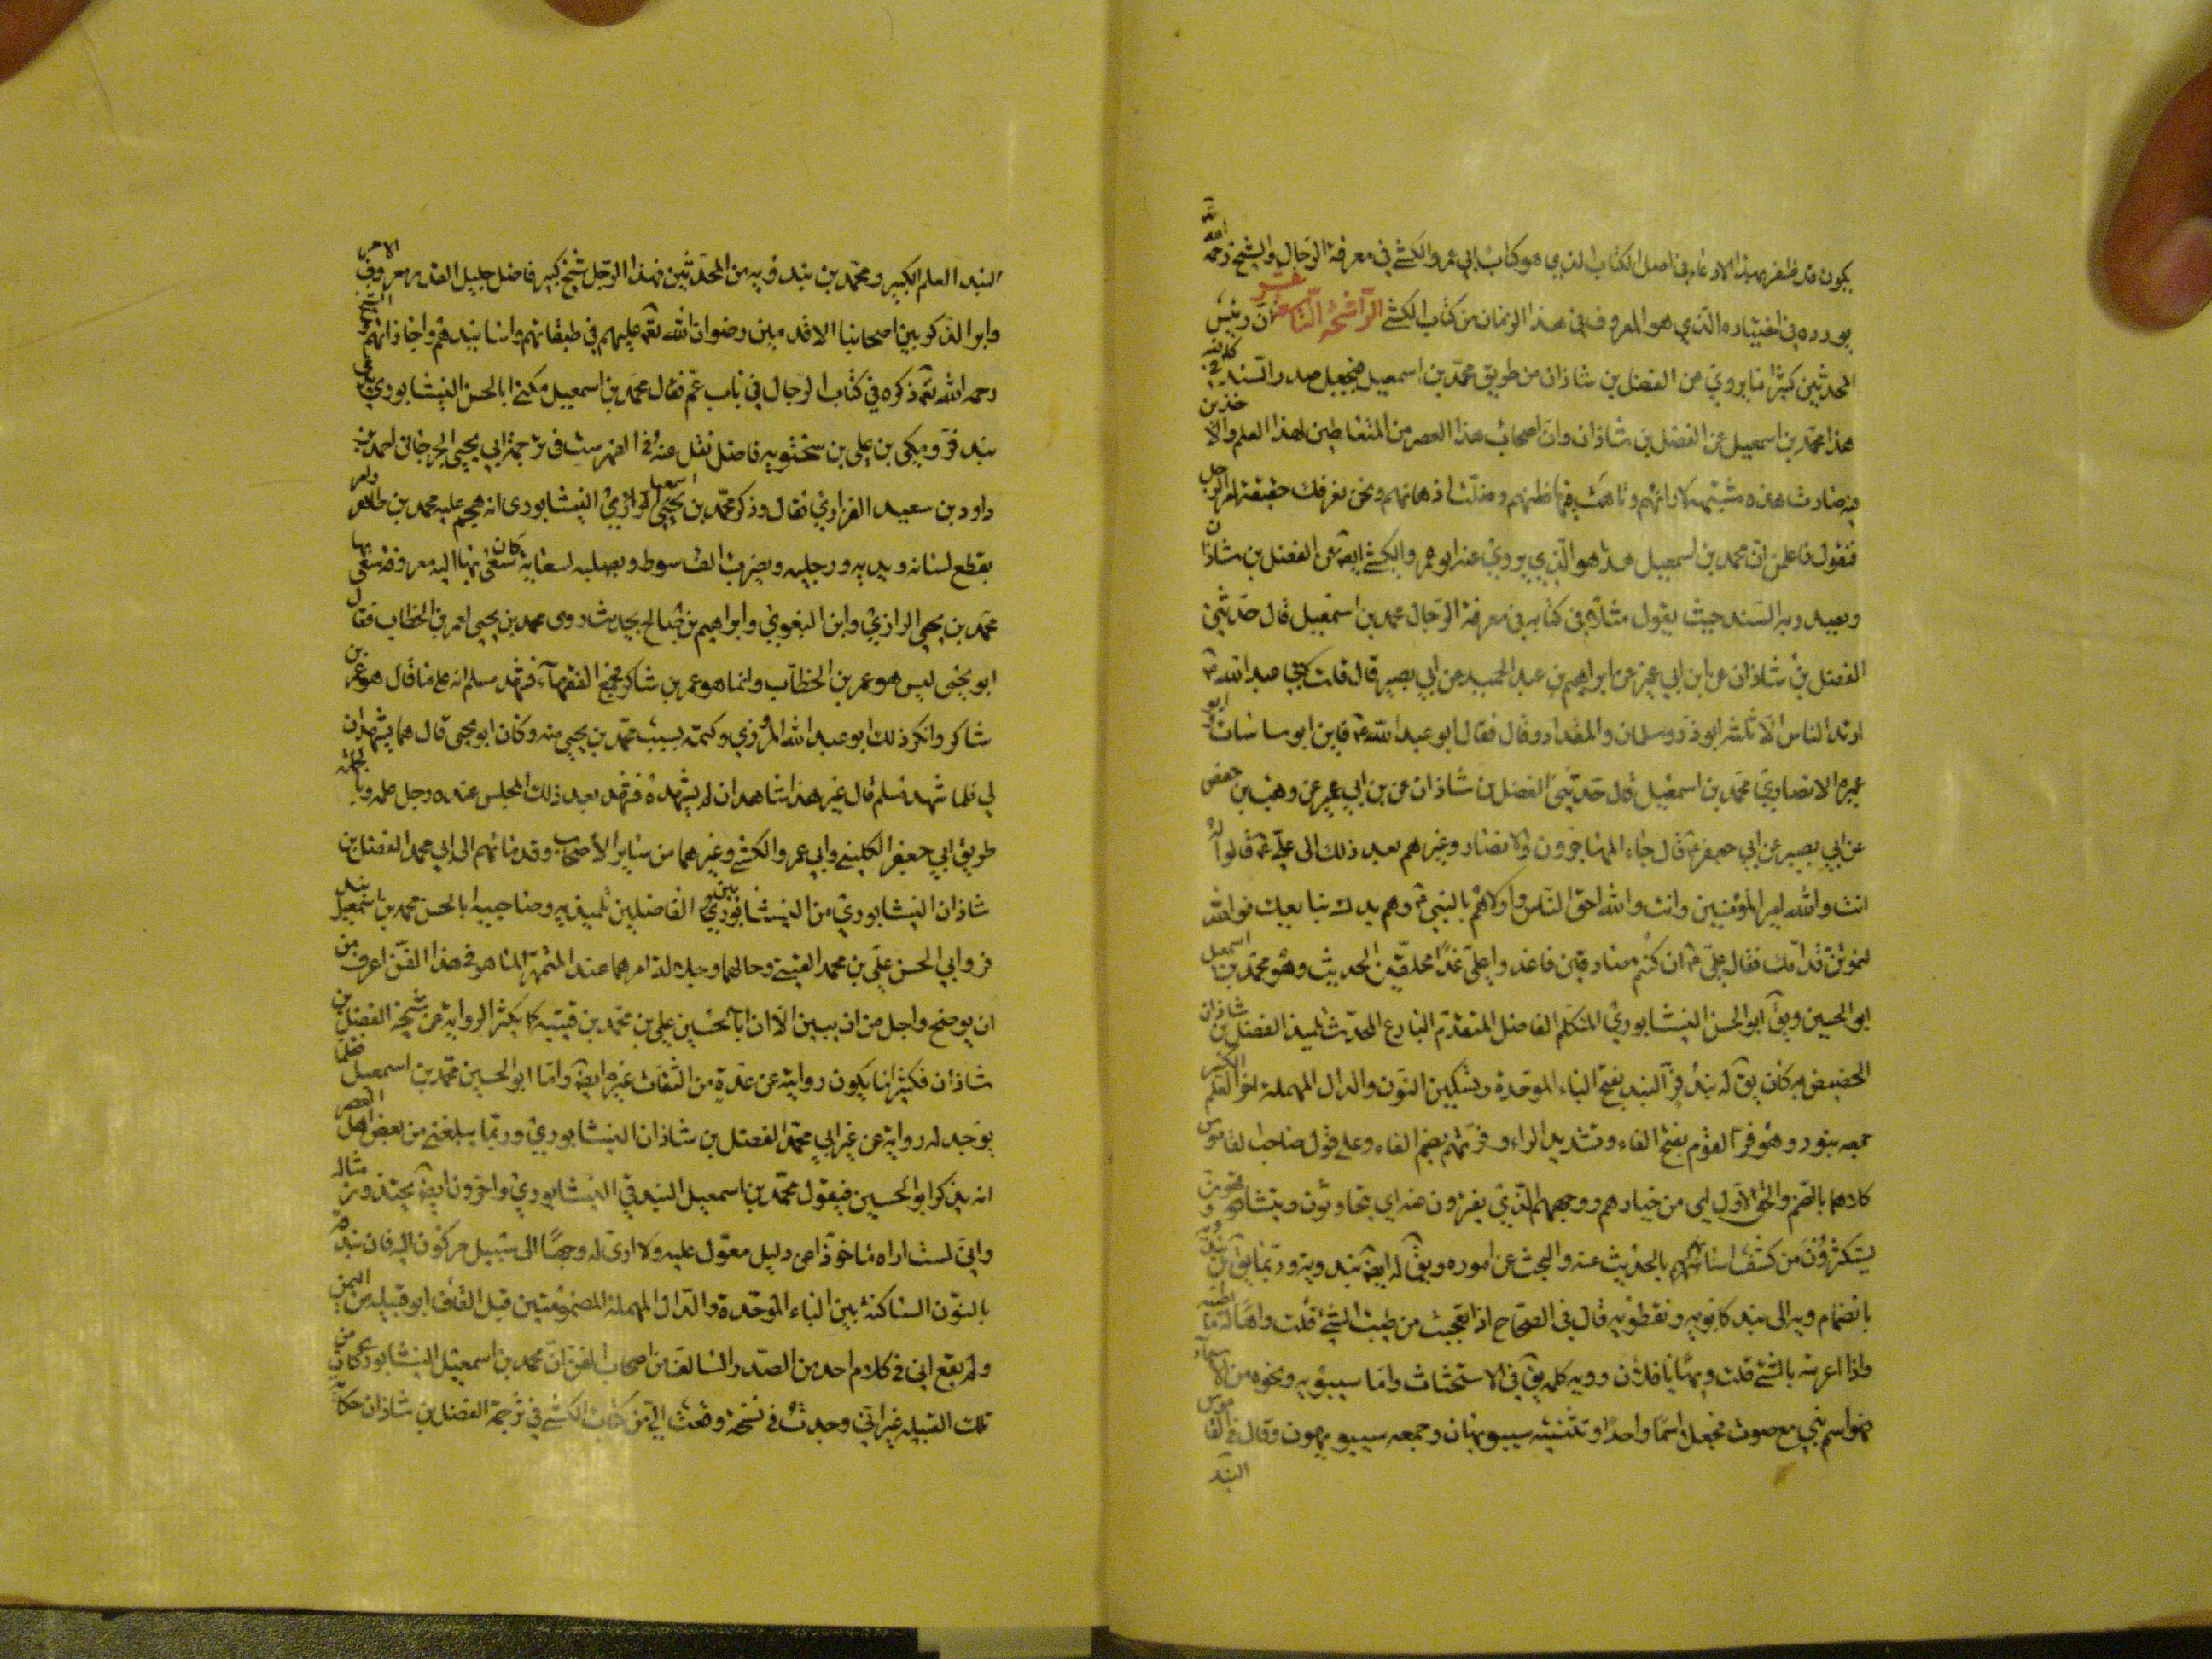 يكون قد ظفر بهذا الادعاء في اصل الكتاب الذي هو كتاب ابي عمرو الكشي في معرفة الرجال والشيخ رحمه الله
يورده في اختياره الذي هو المعروف في هذا الزمان من كتاب الكشي الراشحة التاسعة عشر ان رئيس
المحدثين كثيرا ما يروي عن الفضل بن شاذان من طريق محمد بن اسمعيل فيجعل صدر السند
هذا محمد بن اسمعيل عن الفضل بن شاذان وان اصحاب هذا العصر من المتعاطين لهذا العلم والاخذين
منه صارت هذه مشيتهم لارائهم وتاهت فيها فطنهم وضلت اذهانهم ونحن نعرفك حقيقة امر الرجل
فنقول فاعلمن ان محمد بن اسمعيل هذا هو الذي يروي عنه ابو عمرو الكشي ايضا عن الفضل بن شاذان
ويصدر به السند حيث يقول مثلا في كتابه في معرفة الرجال محمد بن اسمعيل قال حدثني
الفضل بن شاذان عن ابن ابي عمير عن ابراهيم بن عبد الحميد عن ابي بصير قال قلت لابي عبد الله ع
ارتد الناس الا ثلثة ابو ذر وسلمان والمقداد وقال فقال ابو عبد الله ع فاين ابو ساسان وابو
عمرة الانصاري محمد بن اسمعيل قال حدثني الفضل بن شاذان عن بن ابي عمير عن وهيب بن حفص
عن ابي بصير عن ابي جعفر ع قال جاء المهاجرون والانصار وغيرهم بعد ذلك الى علي ع فقالوا له
انت والله امير المؤمنين وانت والله احق الناس واولاهم بالنبي ص وهم يدك نبايعك فوالله
لنموتن قدامك فقال علي ع ان كنتم صادقين فاغدوا علي غدا محلقين الحديث وهو محمد بن اسمعيل
ابو الحسين ويق ابو الحسن النيشابوري المتكلم الفاضل المتقدم البارع المحدث تلميذ الفضل بن شاذان
الخصيص به كان يق له بندفر البند بفتح الباء الموحدة وتسكين النون والدال المهملة اخرا العلم الكبير
جمعه بنود وهو فر القوم بفتح الفاء وتشديد الراء وفرتهم بضم الفاء وعلى قول صاحب القاموس
كلاهما بالضم والحق الاول اي من خيارهم ووجههم الذي يفترون عنه اي يتحاوثون ويتشاهون و
يستكثرون من كشف اسنانهم بالحديث عنه والبحث عن اموره ويق له ايضا بندويه وربما يق بن بندويه
بانضمام ويه الى بند كابويه ونفطويه قال في الصحاح اذا تعجبت من طيب الشيء قلت واها له ما اطيبه
واذا اغريته بالشيء قلت ويها يا فلان وويه كلمة يق في الاستحثاث واما سيبويه ونحوه من الاسماء
فهو اسم بني مع صوت فجعل اسما واحدا وتثنيته سيبويهان وجمعه سيبويهون وقال في القاموس
البند
البند العلم الكبير ومحمد بن بندويه من المحدثين فهذا الرجل شيخ كبير فاضل جليل القدر معروف الامر
وابو الذكر بين اصحابنا الاقدمين رضوان الله تعم عليهم في طبقاتهم واسانيدهم واجازاتهم والشيخ
رحمه الله تعم ذكره في كتاب الرجال في باب لم فقال محمد بن اسمعيل يكنى ابا الحسن النيشابوري يدعى
بندفر ومكي بن علي بن سختويه فاضل نقل عنه في الفهرست في ترجمة ابي يحيى الجرجاني احمد بن
داود بن سعيد الفزاري فقال وذكر محمد بن اسمعيل النيشابوري انه هجم عليه محمد بن طاهر وامر
بقطع لسانه ويديه ورجليه ويضرب الف سوط ويصلبه لسعاية كان سعى بها اليه معروفة سعى بها
محمد بن يحيى الرازي وابن البغوي وابراهيم بن صالح بحديث روى محمد بن يحيى لعمر بن الخطاب فقال
ابو يحيى ليس هو عمر بن الخطاب وانما هو عمر بن شاكر فجمع الفقهاء فشهد مسلم انه على ما قال هو عمر بن
شاكر وانكر ذلك ابو عبد الله المروزي وكتمه بسبب محمد بن يحيى منه وكان ابو يحيى قال هما يشهدان
لي فلما شهد مسلم قال غير هذا شاهد ان لم يشهد فشهد بعد ذلك المجلس عنده رجل علمه وبالجملة
طريق ابي جعفر الكليني وابي عمرو الكشي وغيرهما من ساير الاصحاب وقدمائهم الى ابي محمد الفضل بن
شاذان النيشابوري من النيشابوريين الفاضلين تلميذيه وصاحبيه ابا الحسن محمد بن اسمعيل بند
فر وابي الحسن علي بن محمد القتيبي وحالهما وجلالة امرهما عند المتمهر الماهر في هذا الفن اعرف من
ان يوضح واجل من ان يبين الا ان ابا الحسين علي بن محمد بن قتيبة كما يكثر الرواية عن شيخه الفضل بن
شاذان فكثيرا ما يكون روايته عن عدة من الثقات غيره ايضا واما ابو الحسين محمد بن اسمعيل فقلما
يوجد له رواية عن غير ابي محمد الفضل بن شاذان النيشابوري وربما يبلغني من بعض اهل العصر
انه يذكر ابو الحسين فيقول محمد بن اسمعيل البندقي النيشابوري واخرون ايضا يحتذون مثاله
واني لست اراه ماخوذا عن دليل معول عليه ولا ارى له وجها الى سبيل مركون اليه فان بندقه
بالنون الساكنة بين الباء الموحدة والدال المهملة المضمومتين قبل القاف ابو قبيلة من اليمن
ولم يقع الي في كلام احد من الصدر السالف من اصحاب الفن ان محمد بن اسمعيل النيشابوري كان من
تلك القبيلة غير اني وجدت في نسخة وقعت الي من كتاب الكشي في ترجمة الفضل بن شاذان حكاية